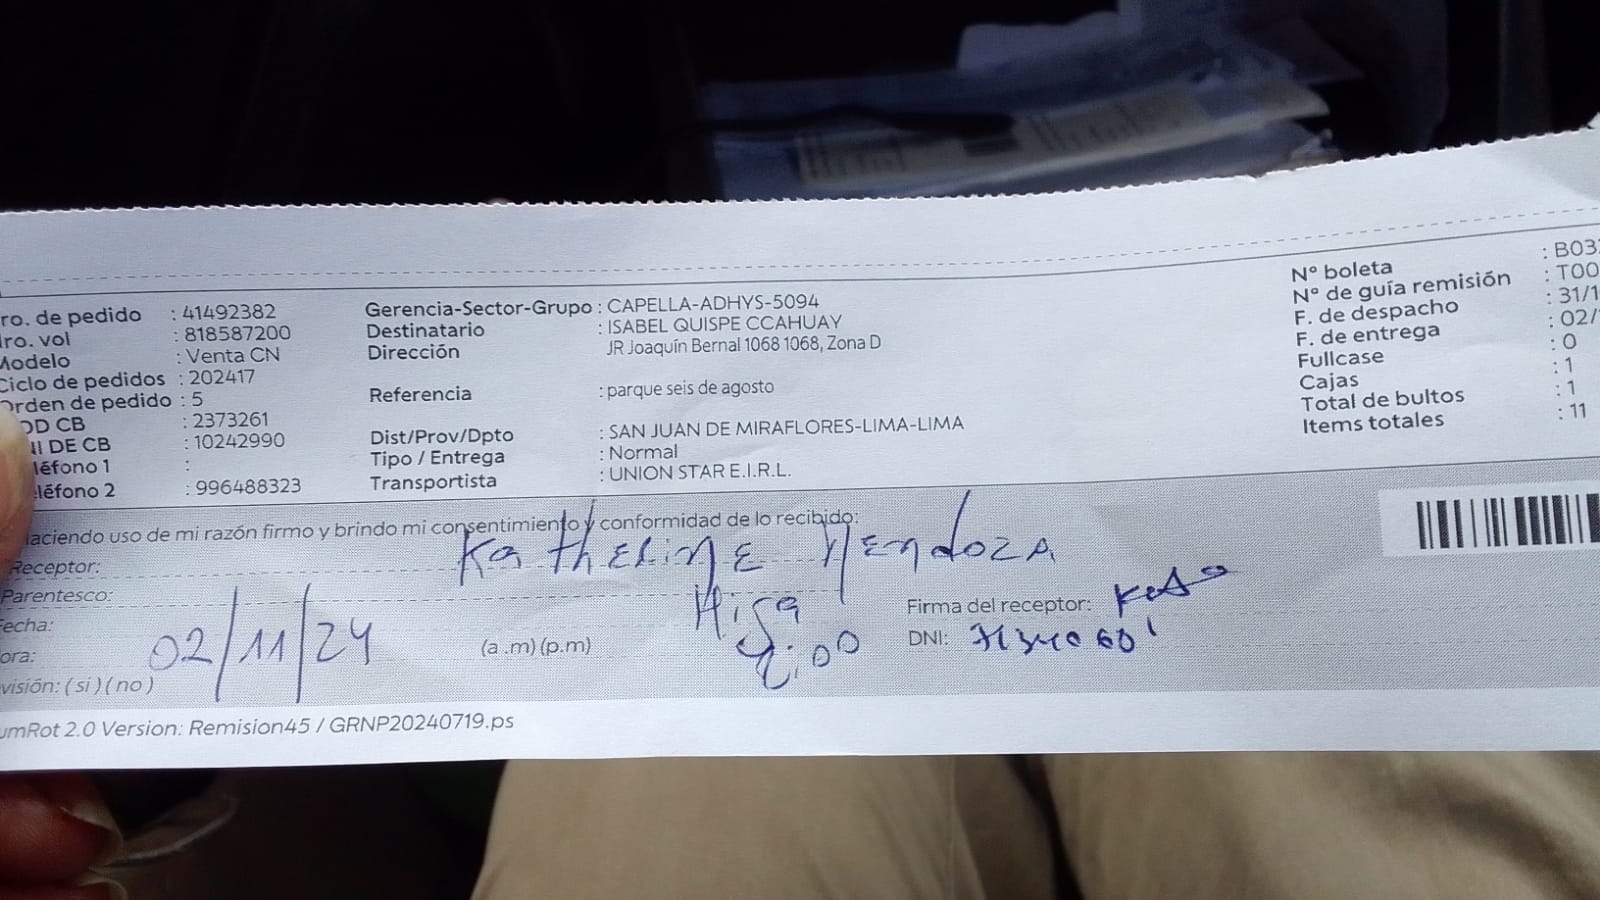 ro. de pedido : 41492382
ro. vol : 818587200
Modelo : Venta CN
Ciclo de pedidos : 202417
Orden de pedido : 5
OD CB : 2373261
NI DE CB : 10242990
léfono 1 :
eléfono 2 : 996488323
Gerencia-Sector-Grupo : CAPELLA-ADHYS-5094
Destinatario : ISABEL QUISPE CCAHUAY
Dirección JR Joaquín Bernal 1068 1068, Zona D
Referencia : parque seis de agosto
Dist/Prov/Dpto : SAN JUAN DE MIRAFLORES-LIMA-LIMA
Tipo / Entrega : Normal
Transportista : UNION STAR E.I.R.L.
N° boleta : B03
N° de guía remisión : T00
F. de despacho : 31/1
F. de entrega : 02/
Fullcase : 0
Cajas : 1
Total de bultos : 1
Items totales : 11
aciendo uso de mi razón firmo y brindo mi consentimiento y conformidad de lo recibido:
Receptor: Katherine Mendoza
Parentesco: Hija
echa: 02/11/24
ora: (a .m) (p.m) 2:00
Firma del receptor:
DNI:
visión: ( si ) ( no )
umRot 2.0 Version: Remision45 / GRNP20240719.ps